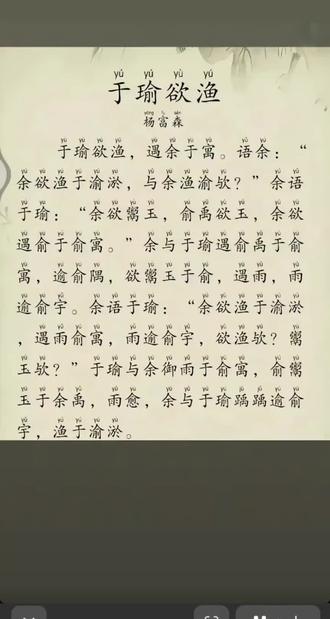 于瑜欲渔
杨富森
于瑜欲渔，遇余于寓。语余：“
余欲渔于渝淤，与余渔渝欤？”余语
于瑜：“余欲鬻玉，俞禹欲玉，余欲
遇俞于俞寓。”余与于瑜遇俞禹于俞
寓，逾俞隅，欲鬻玉于俞，遇雨，雨
逾俞宇。余语于瑜：“余欲渔于渝淤
，遇雨俞寓，雨逾俞宇，欲渔欤？鬻
玉欤？”于瑜与余御雨于俞寓，俞鬻
玉于余禹，雨愈，余与于瑜踽踽逾俞
宇，渔于渝淤。